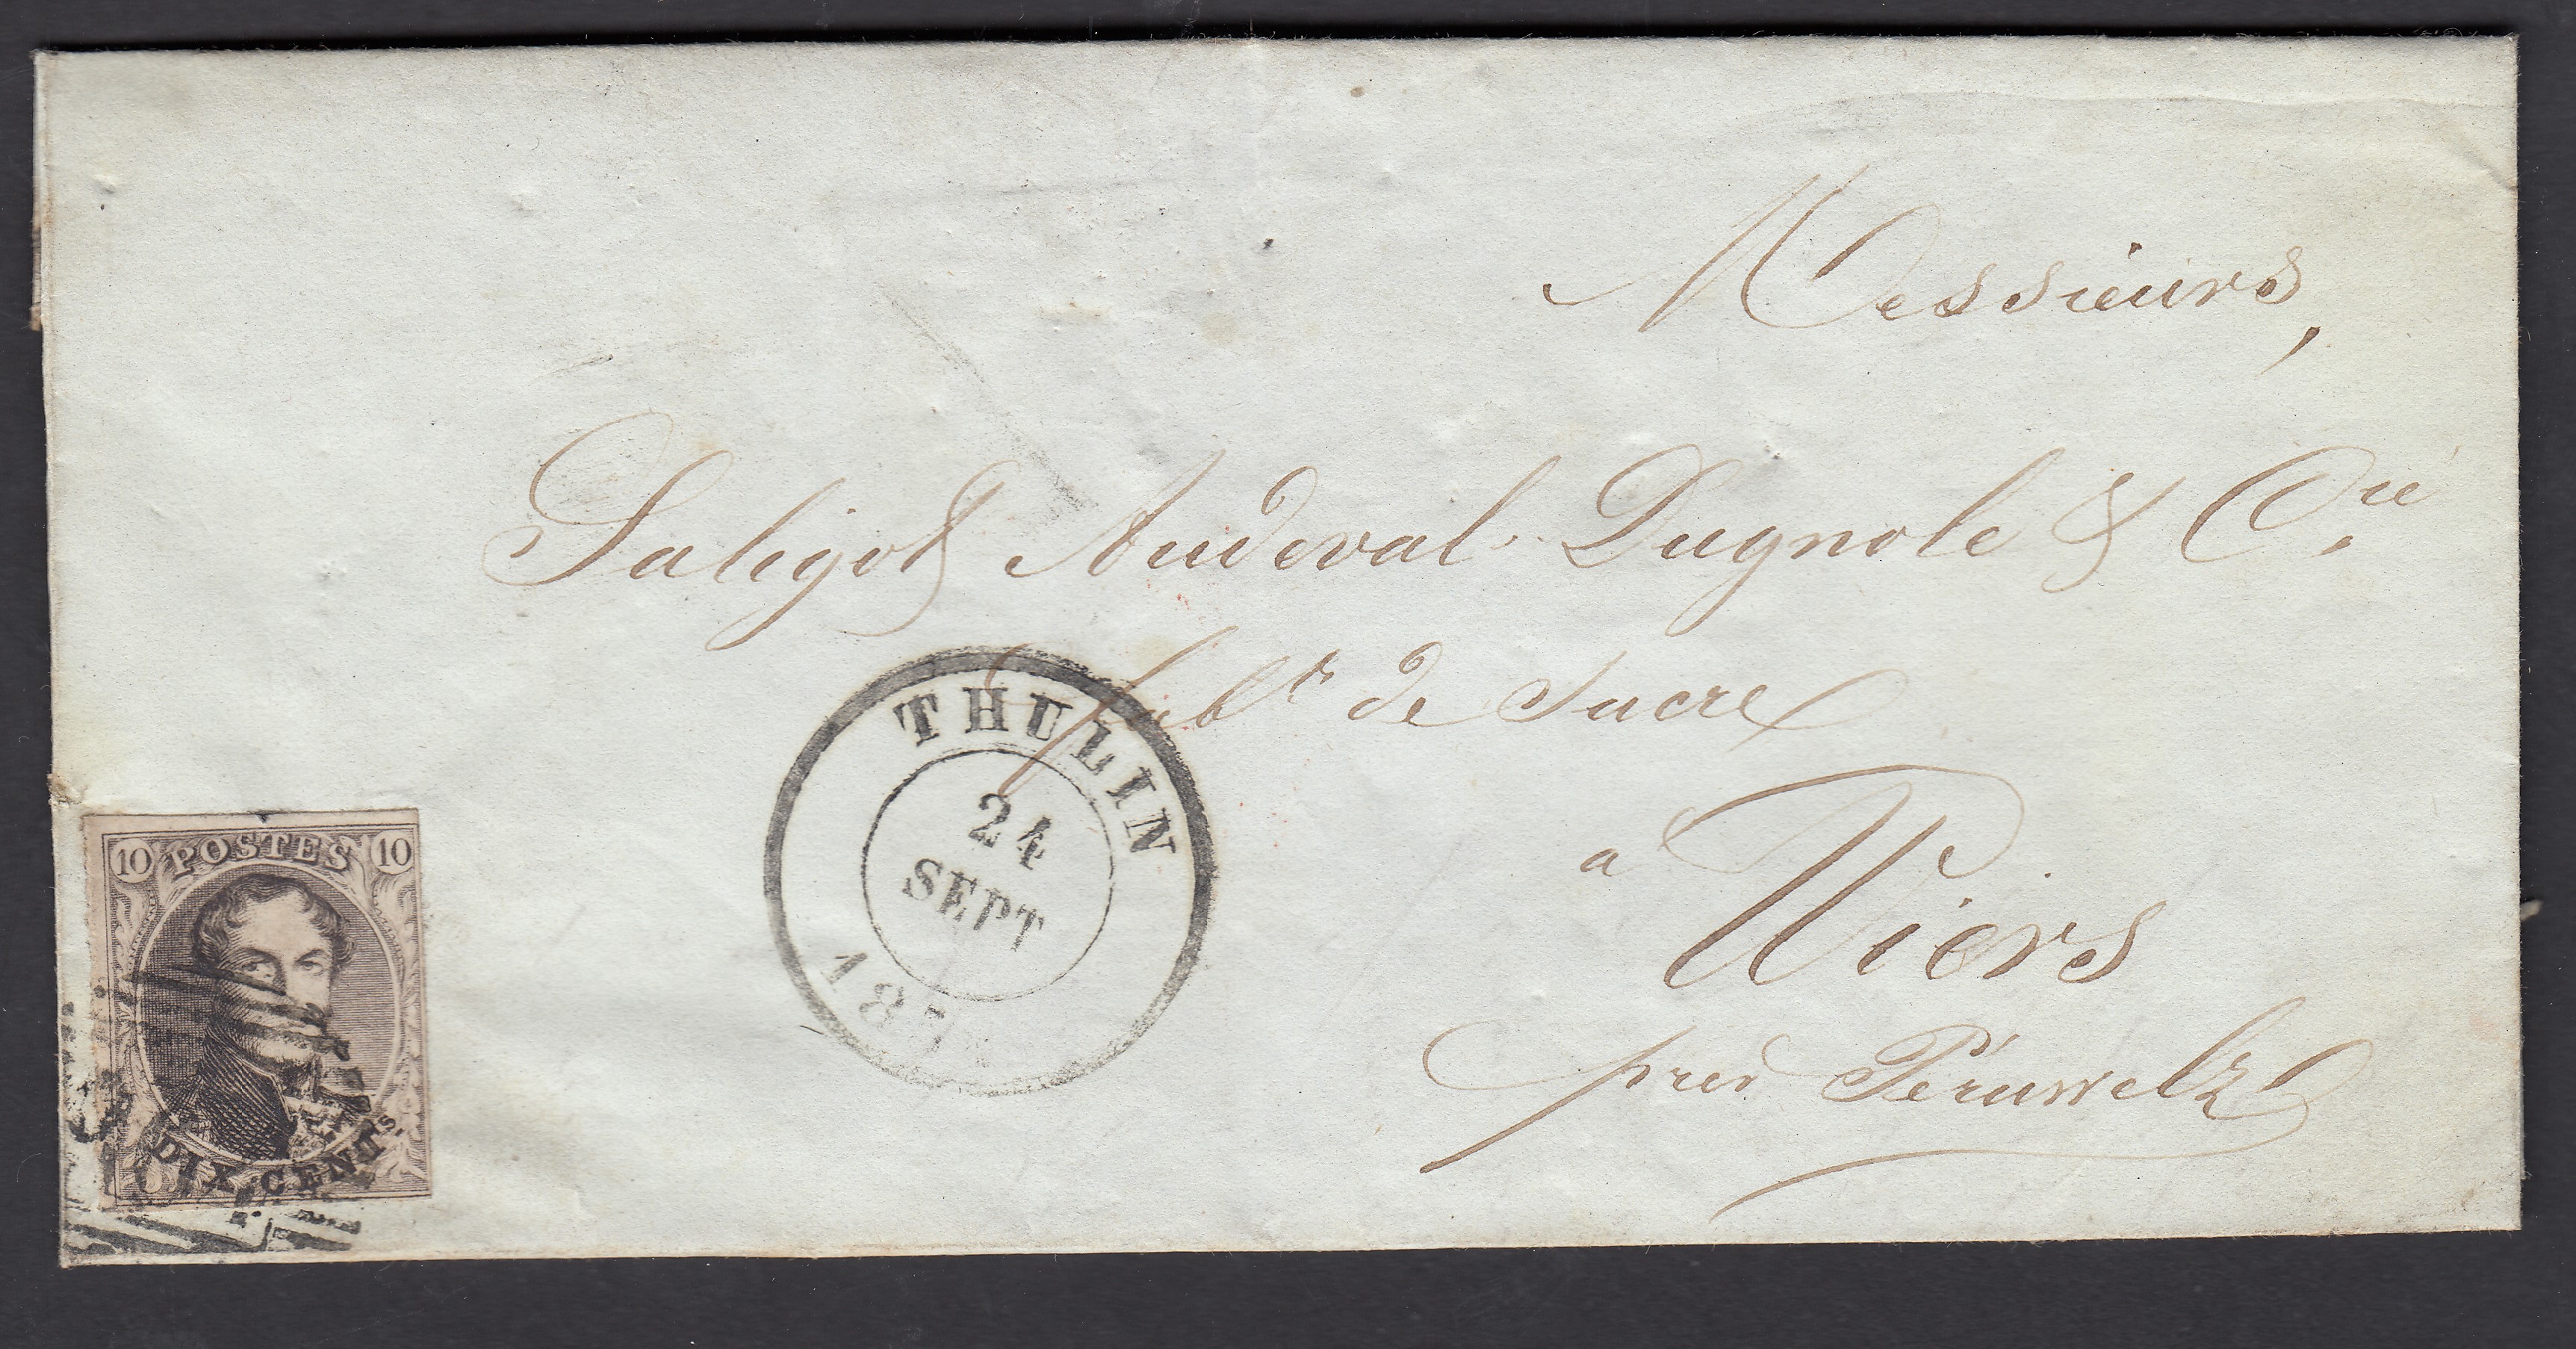 Messieurs,
Saligot Audeval Dugnole & Cie
fabts de Sucre
a Wiers
près Péruwelz
THULIN
24
SEPT
10 POSTES 10
DIX CENTS.